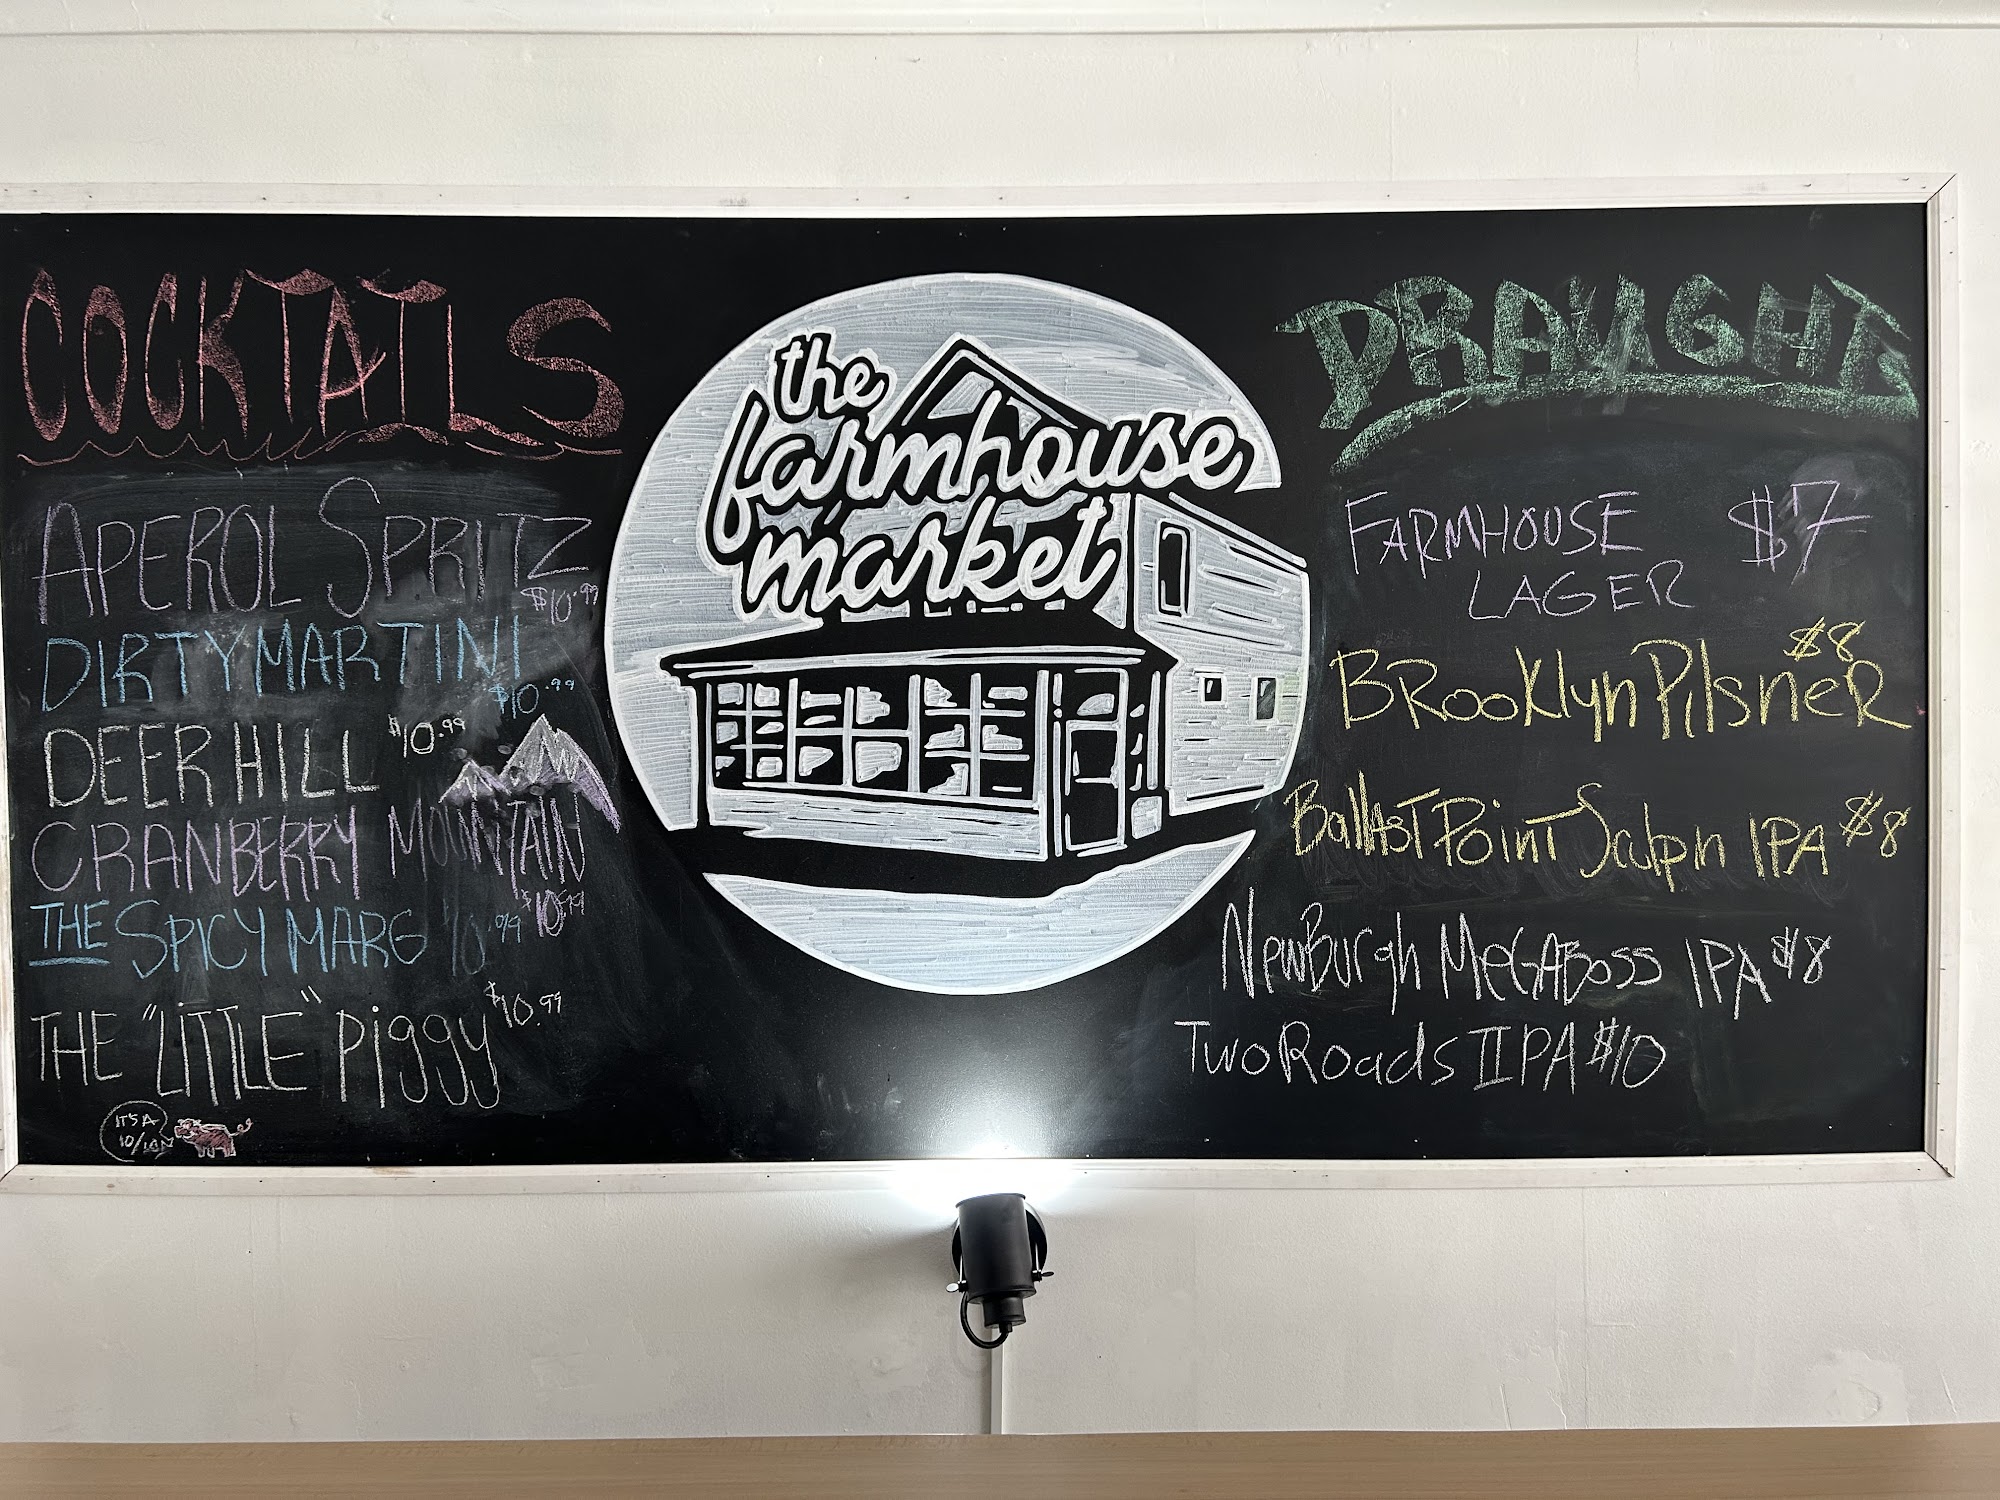 COCKTAILS
APEROL SPRITZ
$10.99
DIRTY MARTINI
$10.99
DEER HILL $10.99
CRANBERRY MOUNTAIN
$10.99
THE SPICY MARG 10.99
THE "LITTLE" Piggy $10.99
IT'S A
10/10
the
farmhouse
market
DRAUGHT
FARMHOUSE $7
LAGER
$8
BROOKlyn PilsneR
BallAST Point Sculpin IPA $8
NewBurgh MeGABoss IPA $8
Two Roads IIPA $10